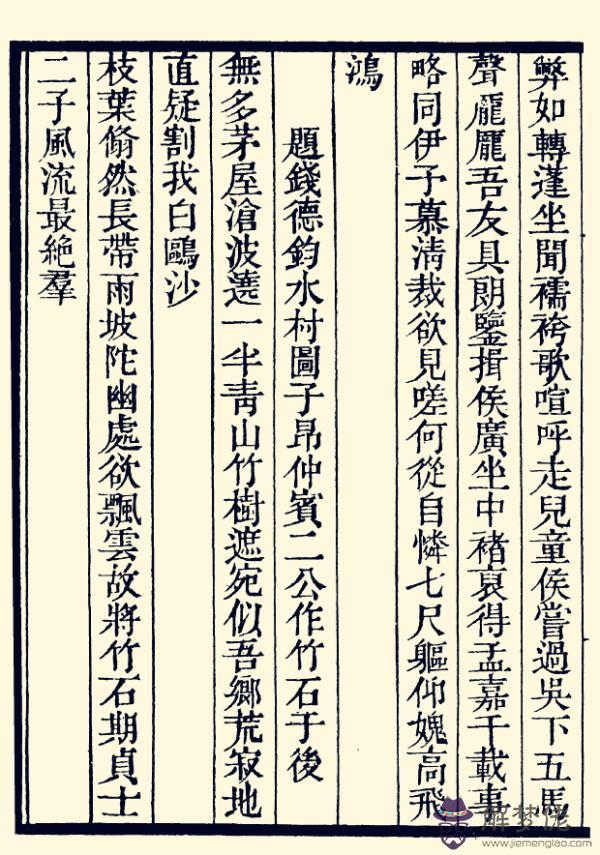 弊如轉蓬坐聞襦袴歌喧呼走兒童侯嘗過吳下五馬
聲龎龎吾友具朗鑒揖侯廣坐中褚裒得孟嘉千載事
略同伊予慕清裁欲見嗟何從自憐七尺軀仰媿高飛
鴻
題錢德鈞水村圖子昂仲賓二公作竹石于後
無多茅屋滄波遶一半青山竹樹遮宛似吾鄉荒寂地
直疑割我白鷗沙
枝葉翛然長帶雨坡陀幽處欲飄雲故將竹石期貞士
二子風流最絶羣
解梦佬
www.jiemenglao.com